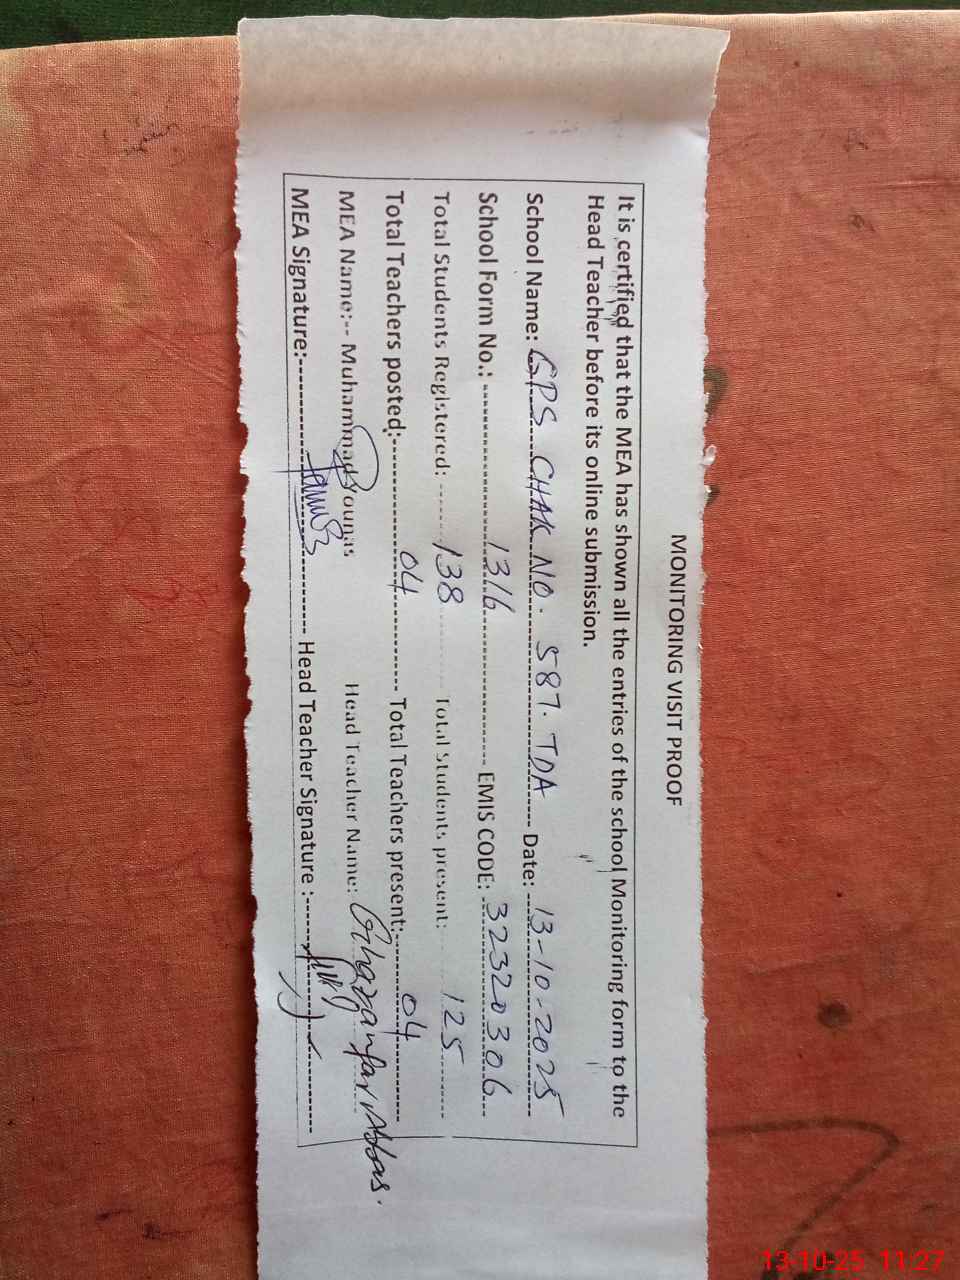 MONITORING VISIT PROOF
It is certified that the MEA has shown all the entries of the school Monitoring form to the
Head Teacher before its online submission.
School Name: GPS CHAK NO. 587. TDA Date: 13-10-2025
School Form No.: 1316 EMIS CODE: 32320306
Total Students Registered: 138 Total Students present: 125
Total Teachers posted: 04 Total Teachers present: 04
MEA Name:-- Muhammad Younas Head Teacher Name: Ghazanfar Abbas.
MEA Signature: Head Teacher Signature :
13-10-25 11:27